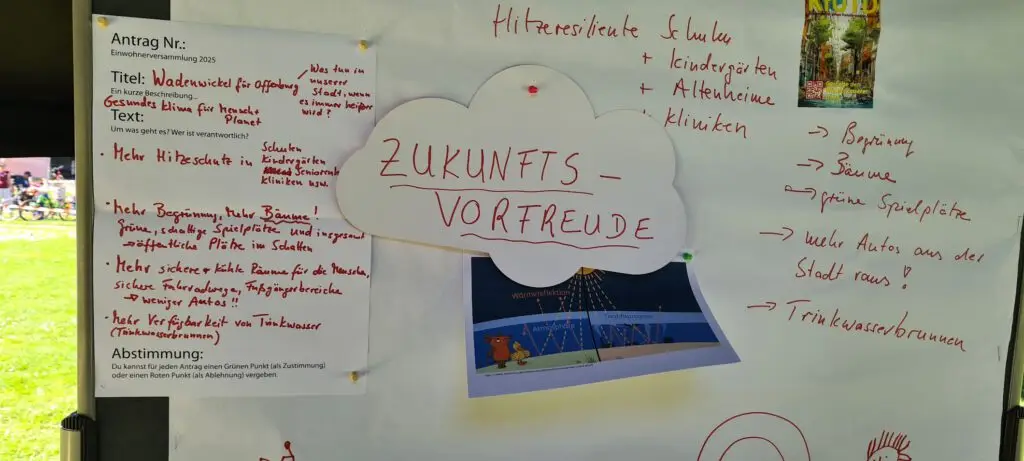 Antrag Nr.:
Einwohnerversammlung 2025
Titel: Wadenwickel für Offenburg
Was tun in
unserer
Stadt, wenn
es immer heißer
wird?
Ein kurze Beschreibung...
Gesundes Klima für Mensch+
Planet
Text:
Um was geht es? Wer ist verantwortlich?
• Mehr Hitzeschutz in Schulen
Kindergärten
Seniorenh
Kliniken usw.
• Mehr Begrünung, Mehr Bäume!
Grüne, schattige Spielplätze und insgesamt
→ öffentliche Plätze im Schatten
• Mehr sichere + kühle Räume für die Menschen,
sichere Fahrradwege, Fußgängerbereiche
→ weniger Autos!!
• Mehr Verfügbarkeit von Trinkwasser
(Trinkwasserbrunnen)
Abstimmung:
Du kannst für jeden Antrag einen Grünen Punkt (als Zustimmung)
oder einen Roten Punkt (als Ablehnung) vergeben.
ZUKUNFTS-
VORFREUDE
Wärmereflektion
Atmosphäre
Treibhausgase
Hitzeresiliente Schulen
+ Kindergärten
+ Altenheime
+ Kliniken
→ Begrünung
→ Bäume
→ grüne Spielplätze
→ mehr Autos aus der
Stadt raus!
→ Trinkwasserbrunnen